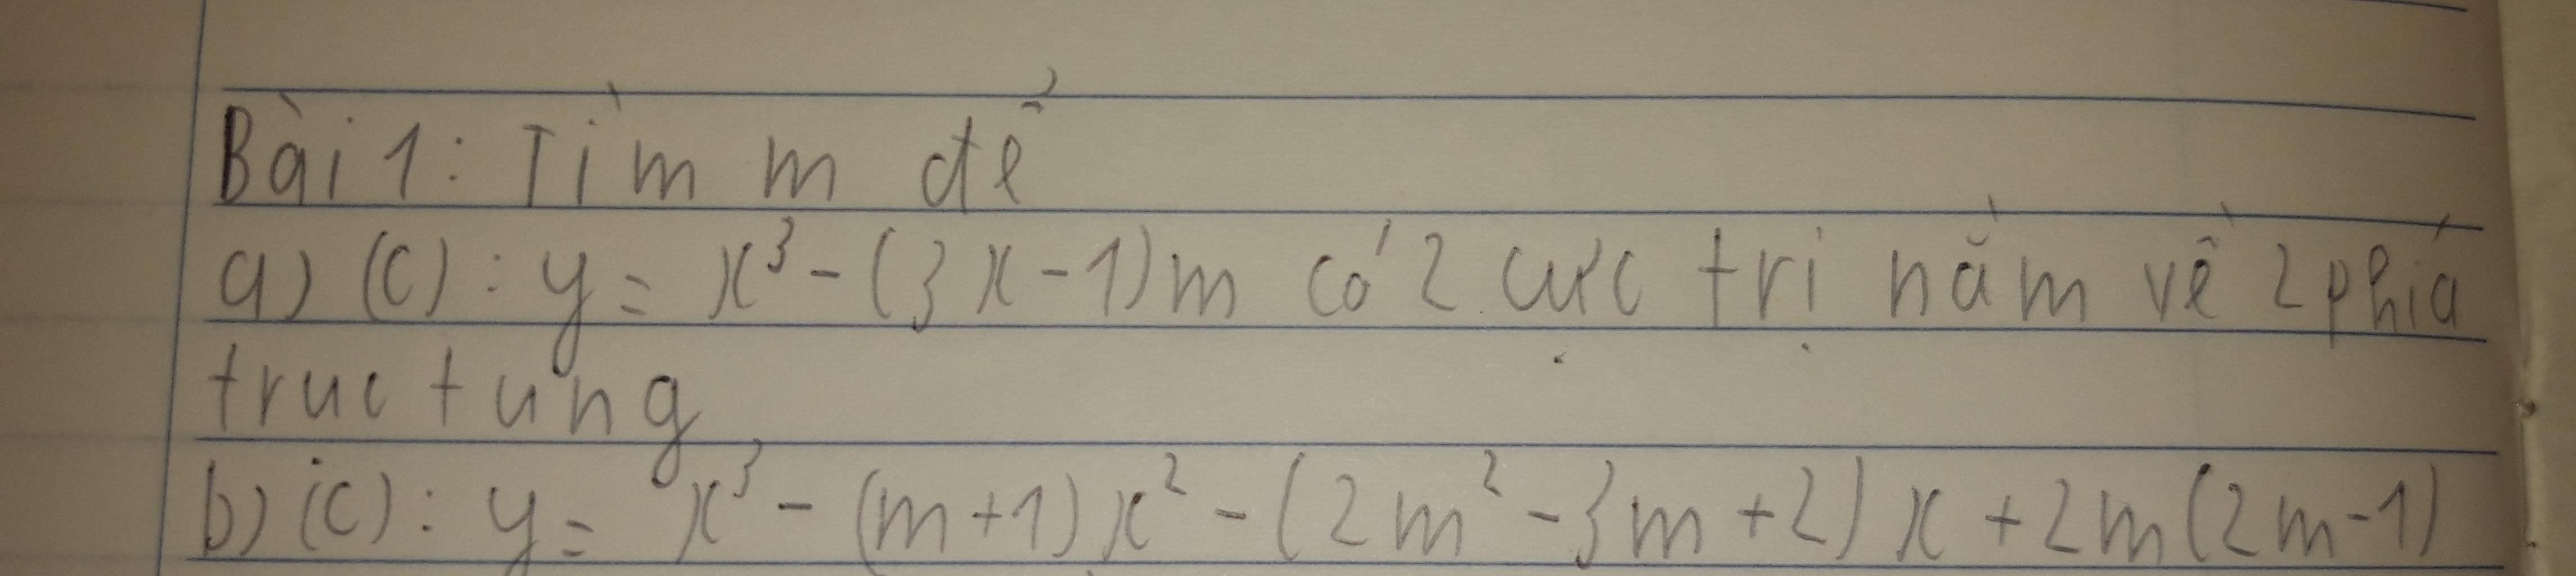 Bài 1: Tìm m để
a) (C): y = x³ - (3x - 1)m có 2 cực trị nằm về 2 phía
trục tung
b) (C): y = x³ - (m+1)x² - (2m² - 3m + 2)x + 2m(2m-1)